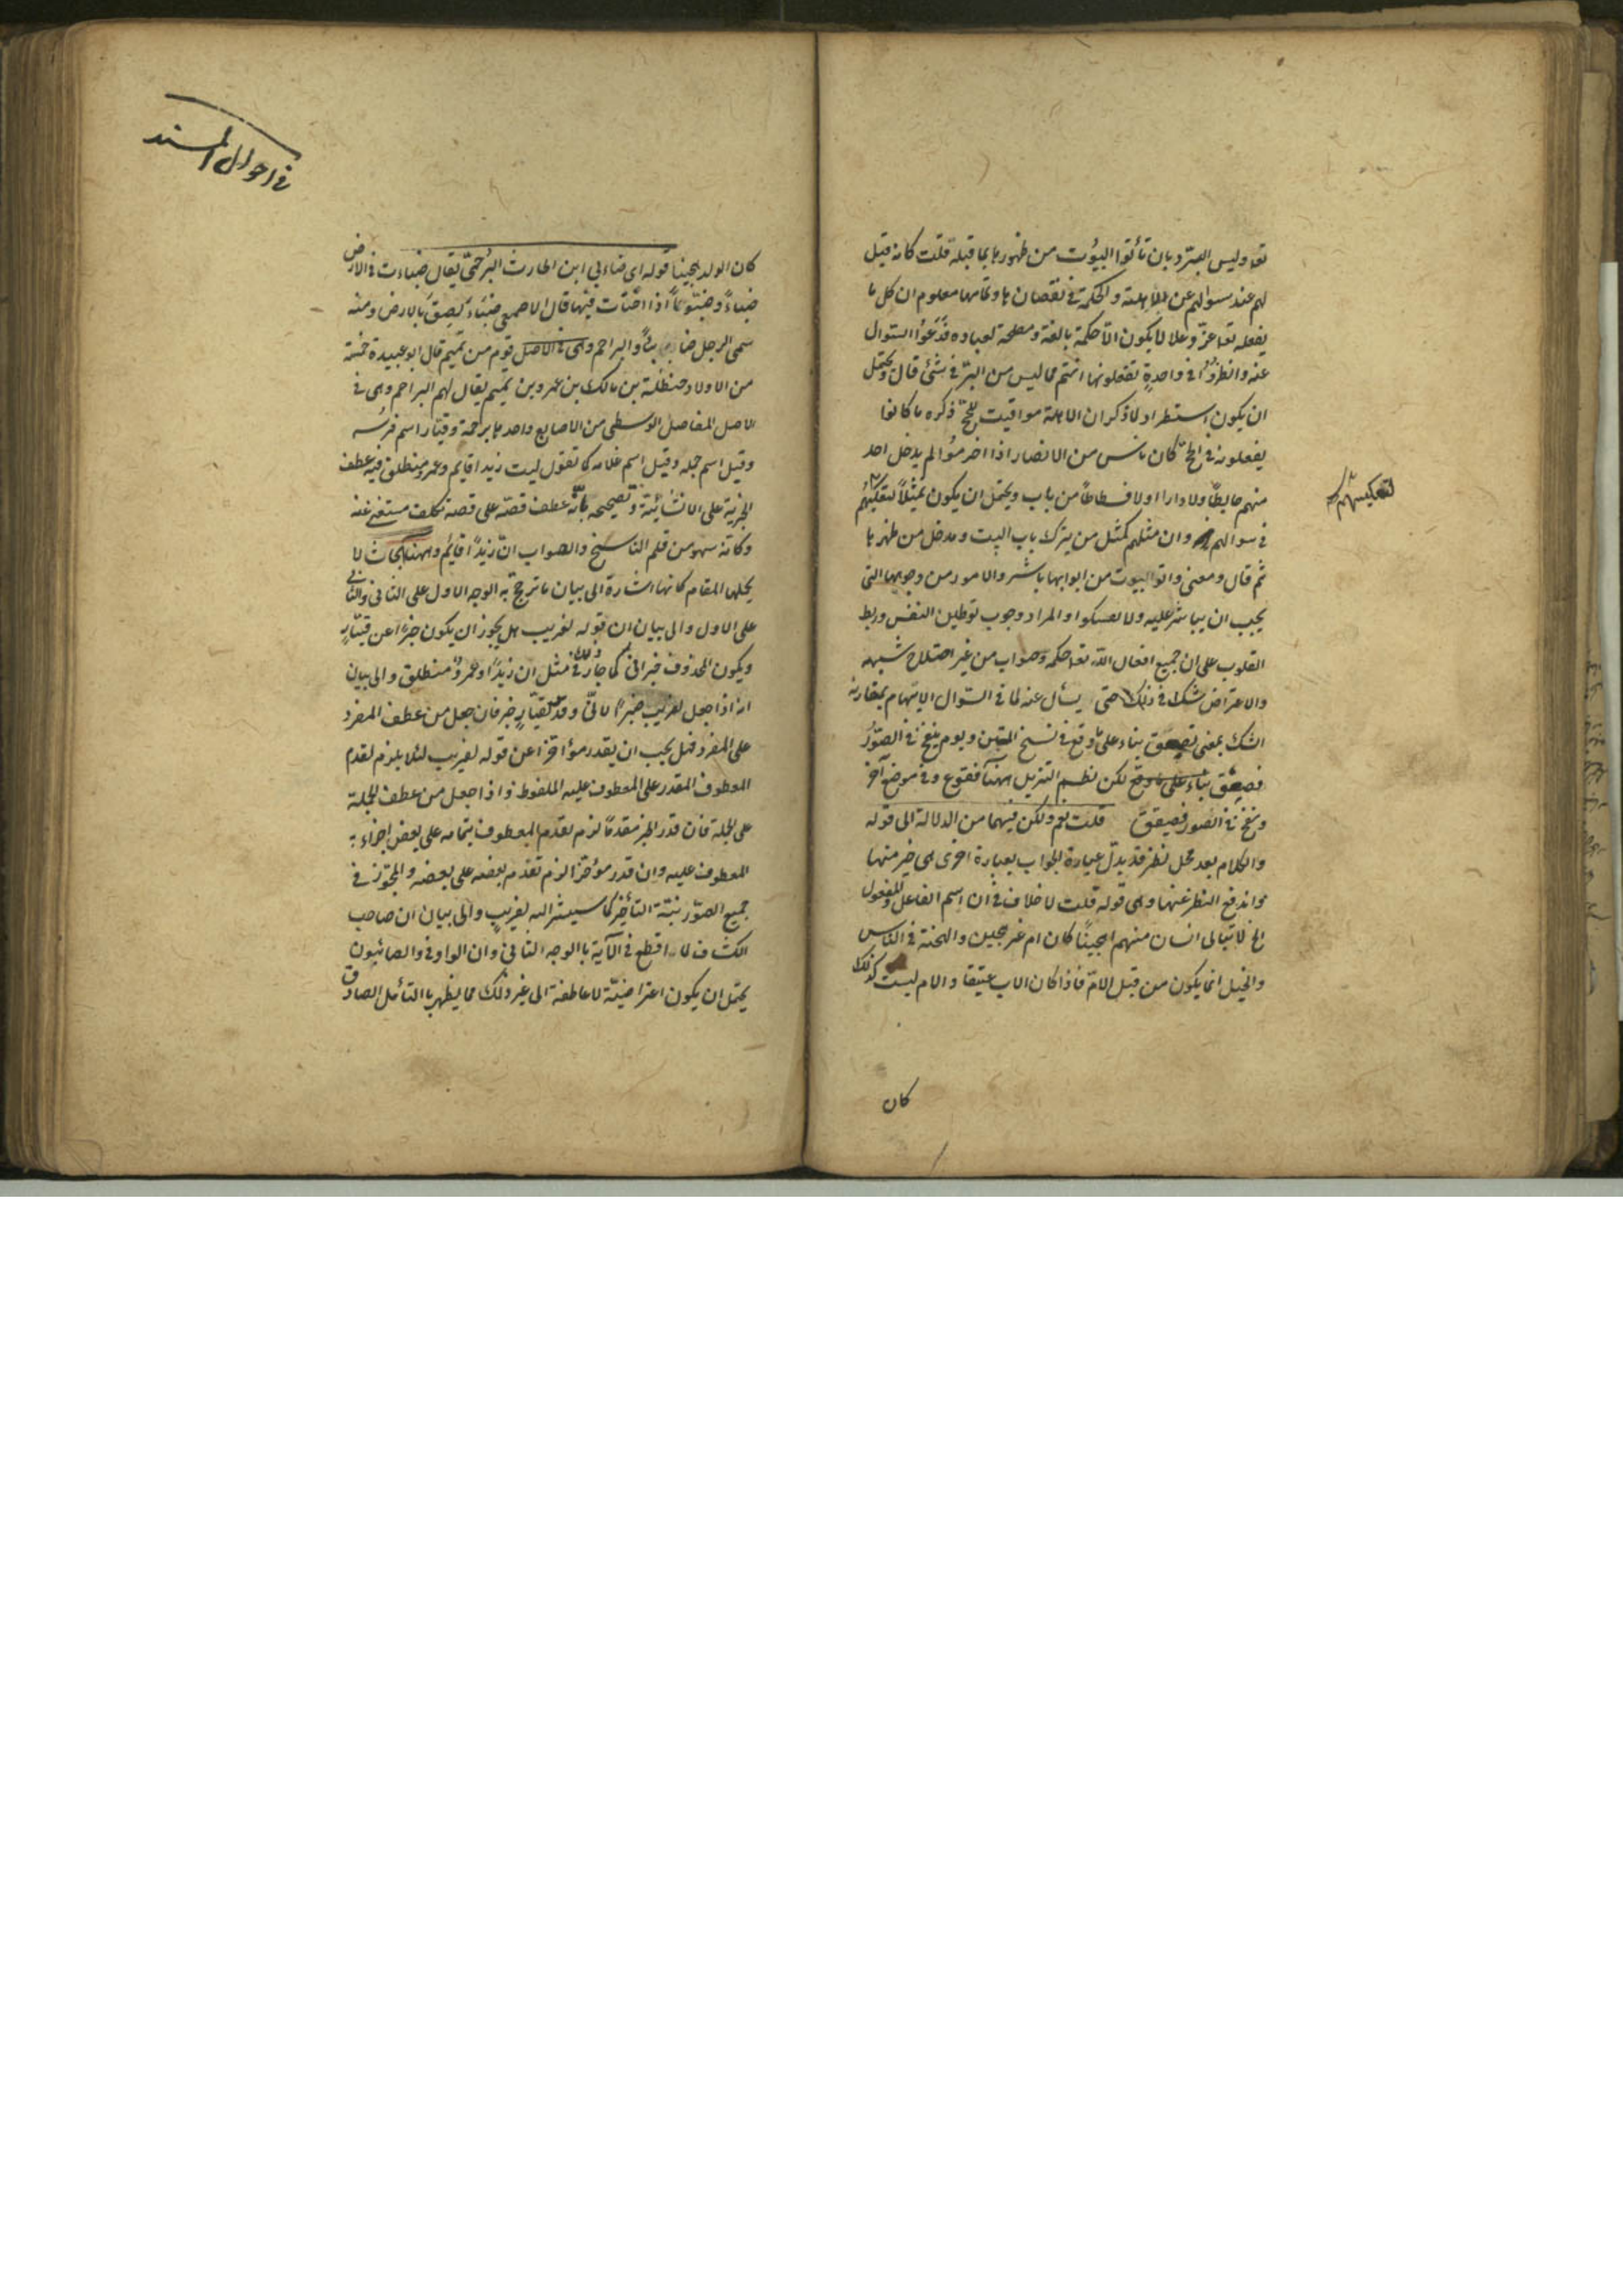 تعا وليس البرّ وبان تأتوا البيُوت من ظهورها بما قبله قلت كانه قيل
لهم عند سوالهم عن الاهلة والحكمة في نقصانها وتمامها معلوم ان كل ما
يفعله تعا عزّ وعلا لا يكون الا حكمة بالغة ومصلحة لعباده فدَعُوا السّوال
عنه وانظرُوا في واحدةٍ تفعلونها انتم مما ليس من البرّ في شئ قال ويحتمل
ان يكون استطرادا لما ذكر ان الاهلة مواقيت للحجّ ذكره ما كانوا
يفعلونه في الحجّ كان ناس من الانصار اذا احرمُوا لم يدخل احد
منهم حايطًا ولا دارا ولا فسطاطًا من باب ويحتمل ان يكون تمثيلاً لتعكيسهم
لتعكيسهم
في سوالهم وان مثلهم كمثل من يترك باب البيت ويدخل من ظهرها
ثم قال ومعنى واتوا البيوت من ابوابها باشروا الامور من وجوهها التى
يجب ان يباشر عليه ولا تعسكوا والمراد وجوب توطين النفس وربط
القلوب على ان جميع افعال اللّه تعا حكمة وصواب من غير اختلاج شبهه
والاعتراض شك في ذلك حتى يسأل عنه لما في السّوال الايهام بمقارنة
الشك بمعنى يصعق بناء على ما وقع في نسخ المتن ويوم ينفخ في الصّوُر
فصعق بناء على ما وقع لكن نظم التنزيل ههنا ففزع وفى موضع آخر
ونفخ في الصور فصعق قلت نعم ولكن فيهما من الدلالة الى قوله
والكلام بعد محل نظر قد بدّل عبارة الجواب بعبارة اخرى هى خير منها
واندفع النظر عنها وهى قوله قلت لا خلاف في ان اسم الفاعل والمفعول
الخ لا يبالى انسان منهم اهجينًا كان ام غير هجين والهجنة في النّاس
والخيل انما يكون من قبل الامّ فاذا كان الاب عتيقا والام ليست كذلك
كان
في احوال المسند
كان الولد هجينا قوله اى ضابئ ابن الحارث البُرجمىّ يقال ضباءت في الارض
ضباءً وضبُوءًا اذا اختبأت فيها قال الاصمعى ضَبَأَ لصِقَ بالارض ومنه
سمى الرجل ضابئًا والبراجم وهى في الاصل قوم من تميم قال ابو عبيدة خمسة
من الاولاد حنظلة بن مالك بن عمرو بن تميم يقال لهم البراجم وهى في
الاصل المفاصل الوسطى من الاصابع واحدها برجمة وقيّار اسم فرسُه
وقيل اسم جمله وقيل اسم غلامه كما تقول ليت زيدا قايم وعمرو منطلق فيه عطف
الخبرية على الانشائية وتصحيحه بانّه عطف قصّة على قصة تكلف مستغنى عنه
وكانّه سهو من قلم الناسخ والصواب انّ زيدًا قايمٌ وههنا ابحاث لا
يحملها المقام كانها اشارة الى بيان ما ترجح به الوجه الاول على الثانى والثانى
على الاول والى بيان ان قوله لغريب هل يجوز ان يكون خبرًا عن قيّارٍ
ويكون المحذوف خبر انى كما جاز ذلك في مثل ان زيدًا وعمرٌو منطلق والى بيان
انه اذا جعل لغريب خبرًا لانّى وقدّر لقيّارٍ خبر فان جعل من عطف المفرد
على المفرد فهل يجب ان يقدر مؤاخّرًا عن قوله لغريب لئلا يلزم تقدم
المعطوف المقدر على المعطوف عليه الملفوظ واذا جعل من عطف الجملة
على الجملة فان قدر الخبر مقدمًا لزم تقدم المعطوف بتمامه على بعض اجزاء
المعطوف عليه وان قدر مؤخرًا لزم تقدم بعضه على بعضه والمجوّز في
جميع الصوّر نيّة التأخير كما سيشير اليه لغريبٍ والى بيان ان صاحب
الكشاف لما قطع في الآية بالوجه الثانى وان الواو في والصائبون
يحتمل ان يكون اعتراضيّة لا عاطفة الى غير ذلك مما يظهر بالتأمل الصادق